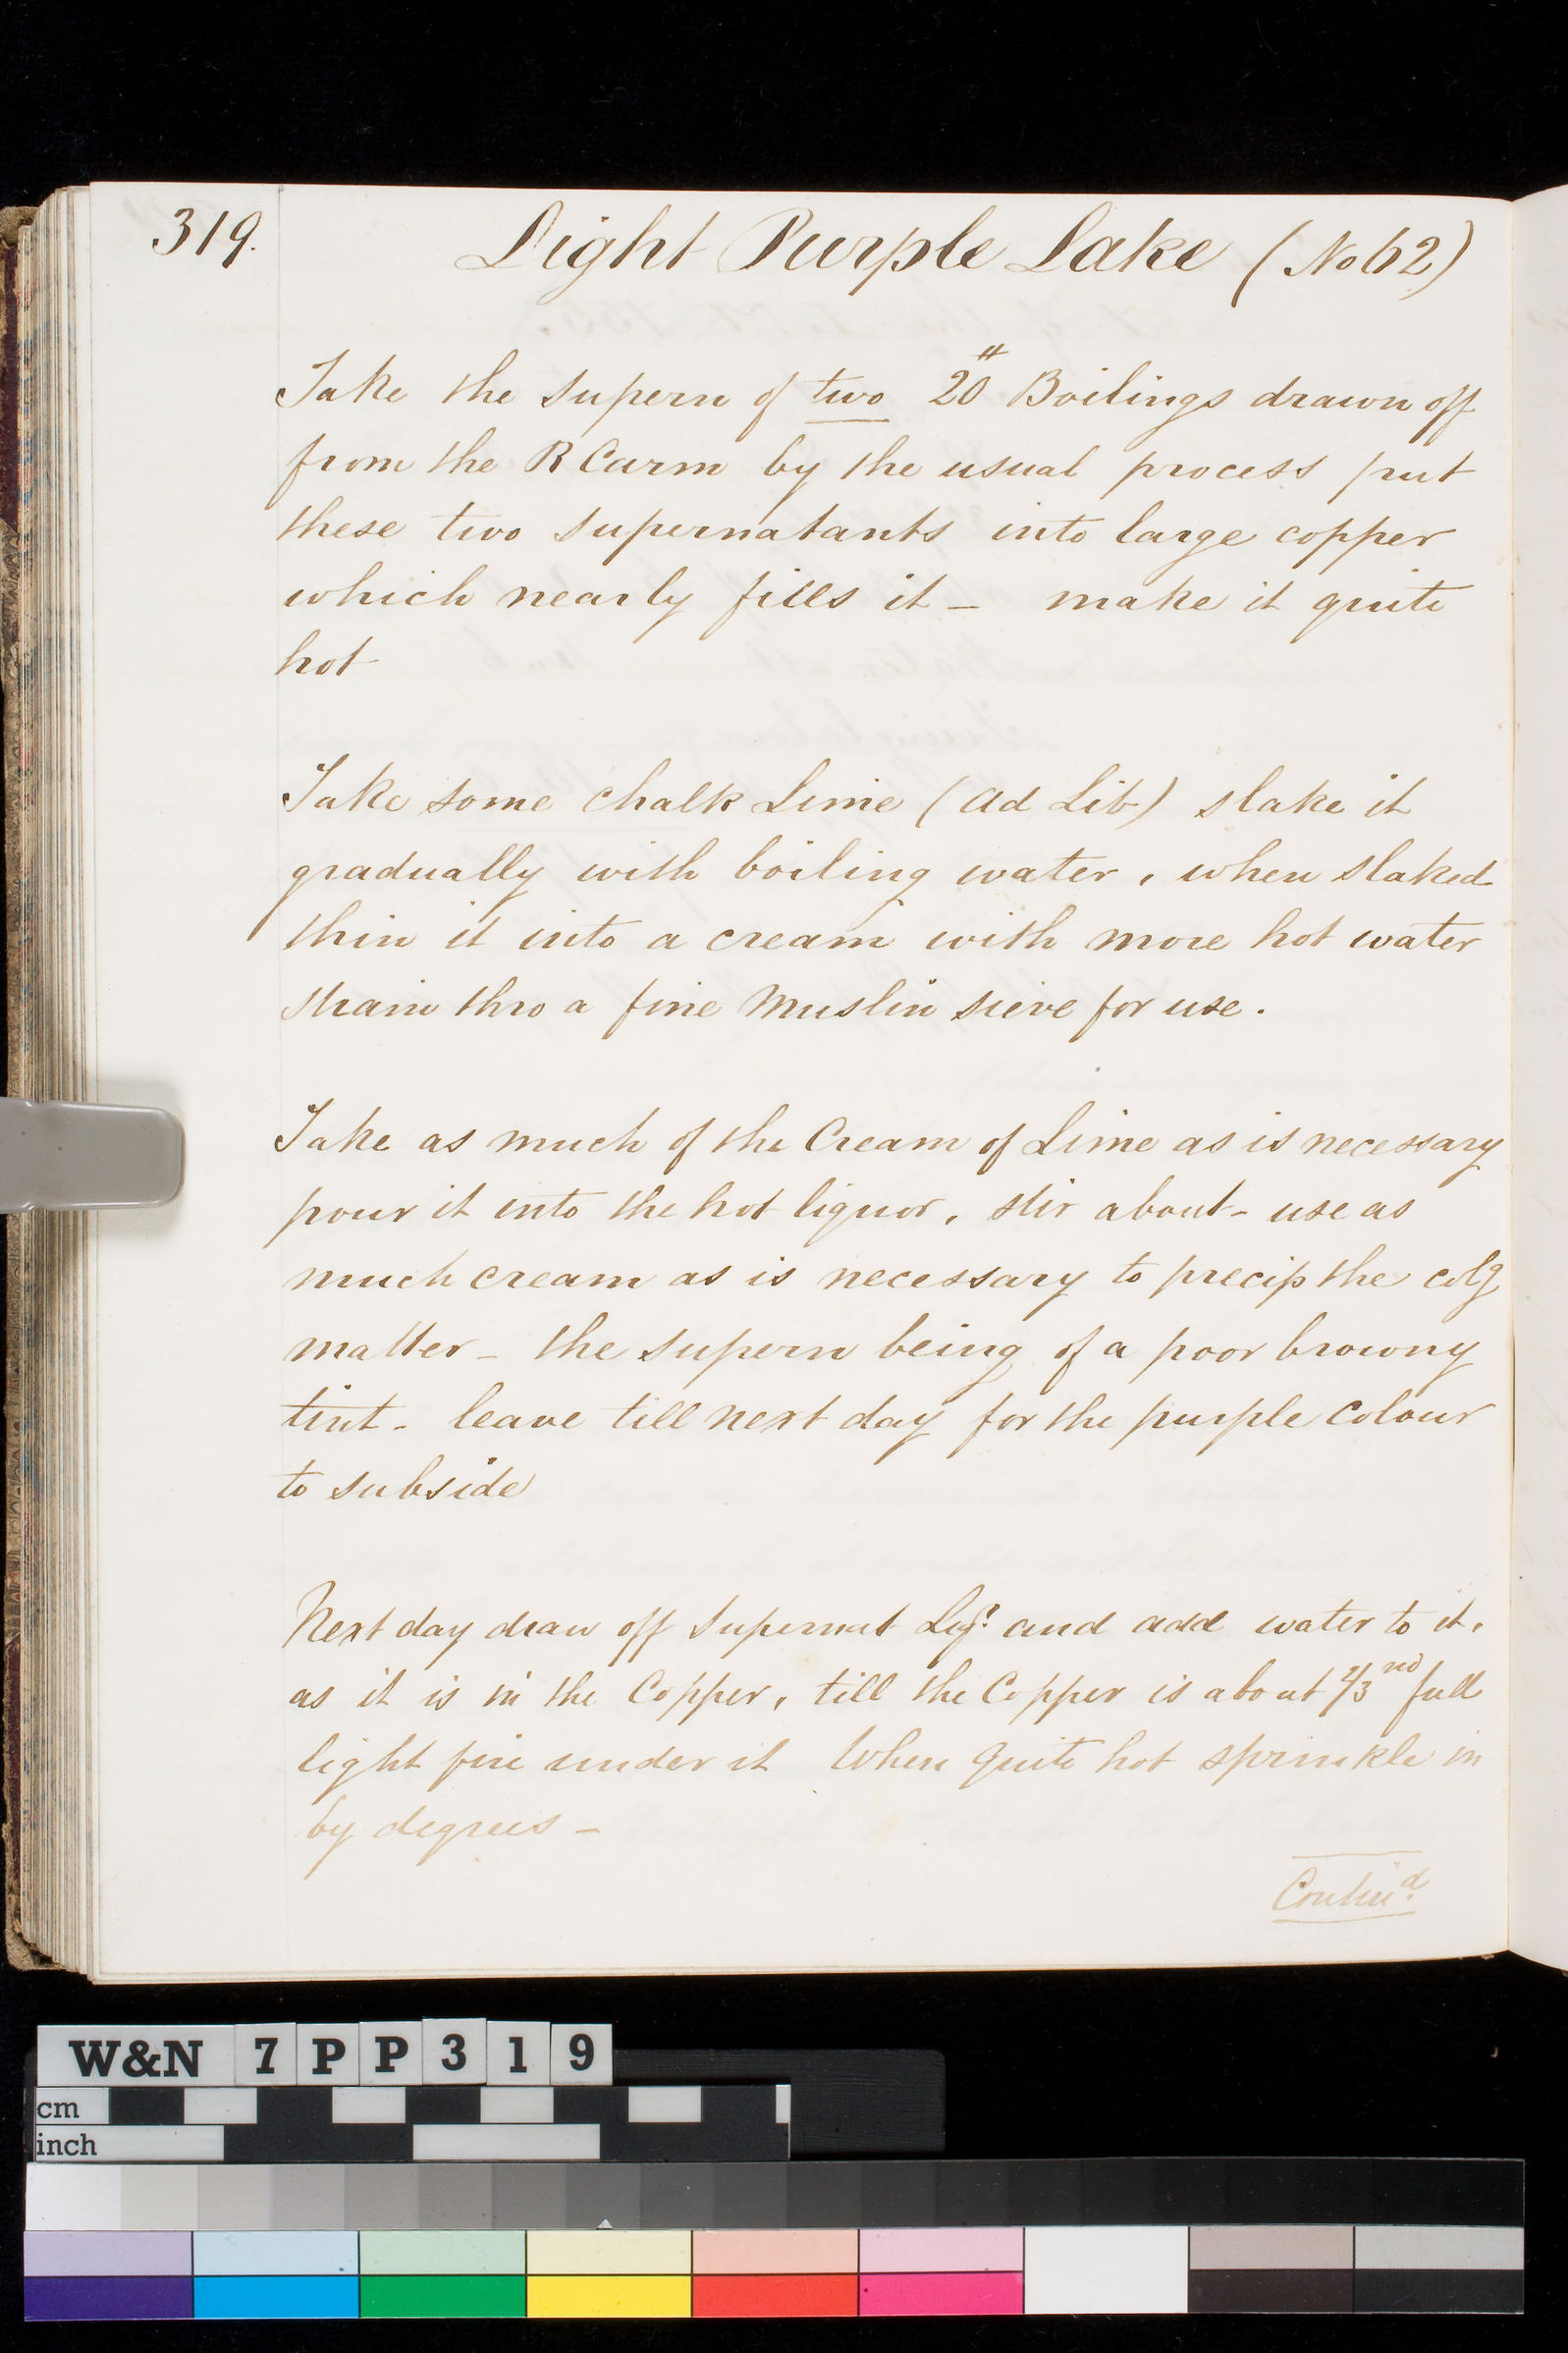 319.
Light Purple Lake (No 62)
Take the Supern of two 20# Boilings drawn off
from the R Carm by the usual process put
these two supernatants into large copper
which nearly fills it – make it quite
hot
Take some chalk Lime (Ad Lib) slake it
gradually with boiling water, when slaked
thin it into a cream with more hot water
strain thro a fine Muslin sieve for use.
Take as much of the Cream of Lime as is necessary
pour it into the hot liquor, stir about – use as
much cream as is necessary to precip the colg
matter – the supern being of a poor browny
tint – leave till next day for the purple colour
to subside
Next day draw off Supernat Lqr. and add water to it,
as it is in the Copper, till the Copper is about 2/3nd full
light fire under it When quite hot sprinkle in
by degrees –
Contind.
W&N 7PP319
cm
inch